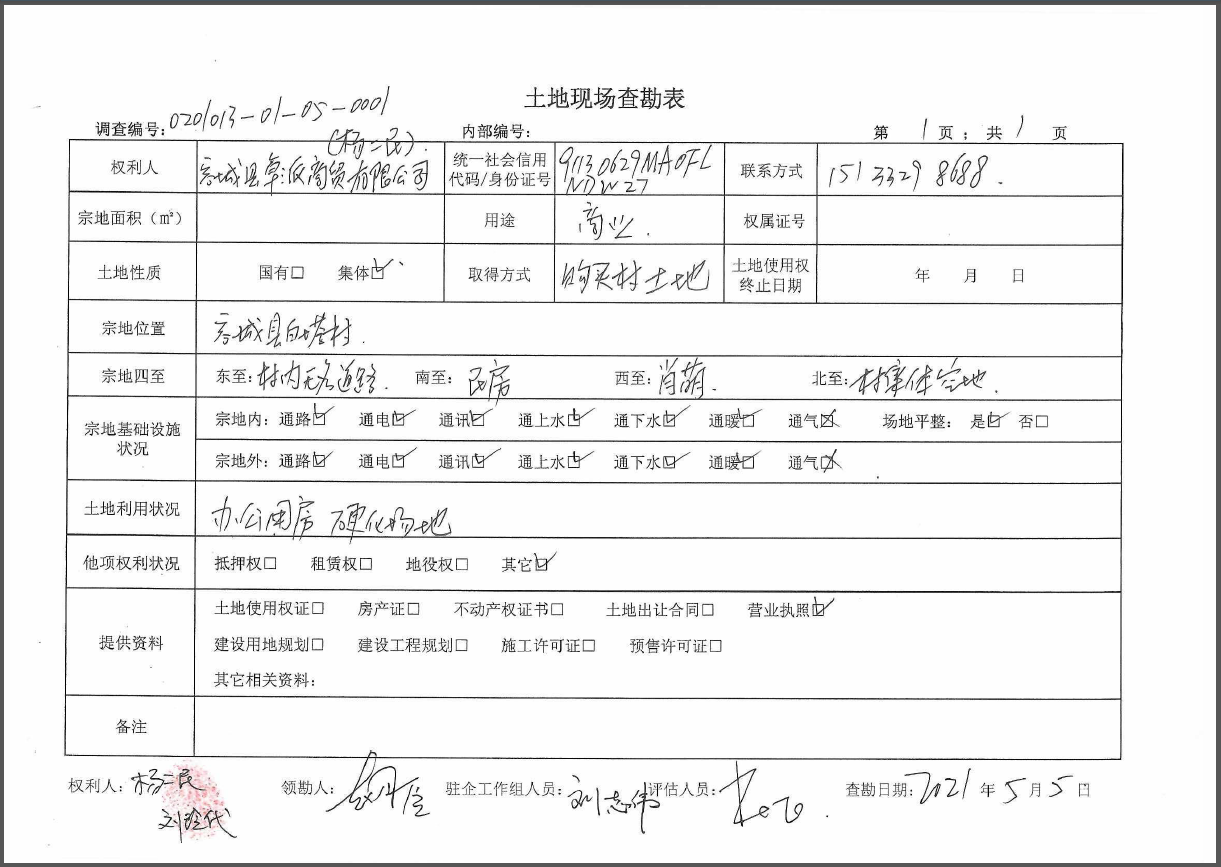 土地现场查勘表
调查编号：020/013-01-05-0001 内部编号： 第 1 页；共 1 页
(杨二民).
权利人 容城县阜派商贸有限公司 统一社会信用代码/身份证号 91130629MA0FLNDW27 联系方式 15133298688.
宗地面积（㎡） 用途 商业. 权属证号
土地性质 国有□ 集体☑ 取得方式 购买村土地 土地使用权终止日期 年 月 日
宗地位置 容城县白塔村.
宗地四至 东至：村内无名道路. 南至：民房 西至：肖萌. 北至：村集体空地.
宗地基础设施状况 宗地内：通路☑ 通电☑ 通讯☑ 通上水☑ 通下水☑ 通暖☑ 通气☒ 场地平整： 是☑ 否□
宗地外：通路☑ 通电☑ 通讯☑ 通上水☑ 通下水☑ 通暖☑ 通气☒
土地利用状况 办公用房 硬化场地
他项权利状况 抵押权□ 租赁权□ 地役权□ 其它☑
土地使用权证□ 房产证□ 不动产权证书□ 土地出让合同□ 营业执照☑
提供资料 建设用地规划□ 建设工程规划□ 施工许可证□ 预售许可证□
其它相关资料：
备注
权利人：杨二民 领勘人： 驻企工作组人员：刘志伟 评估人员： 查勘日期：2021 年 5 月 5 日